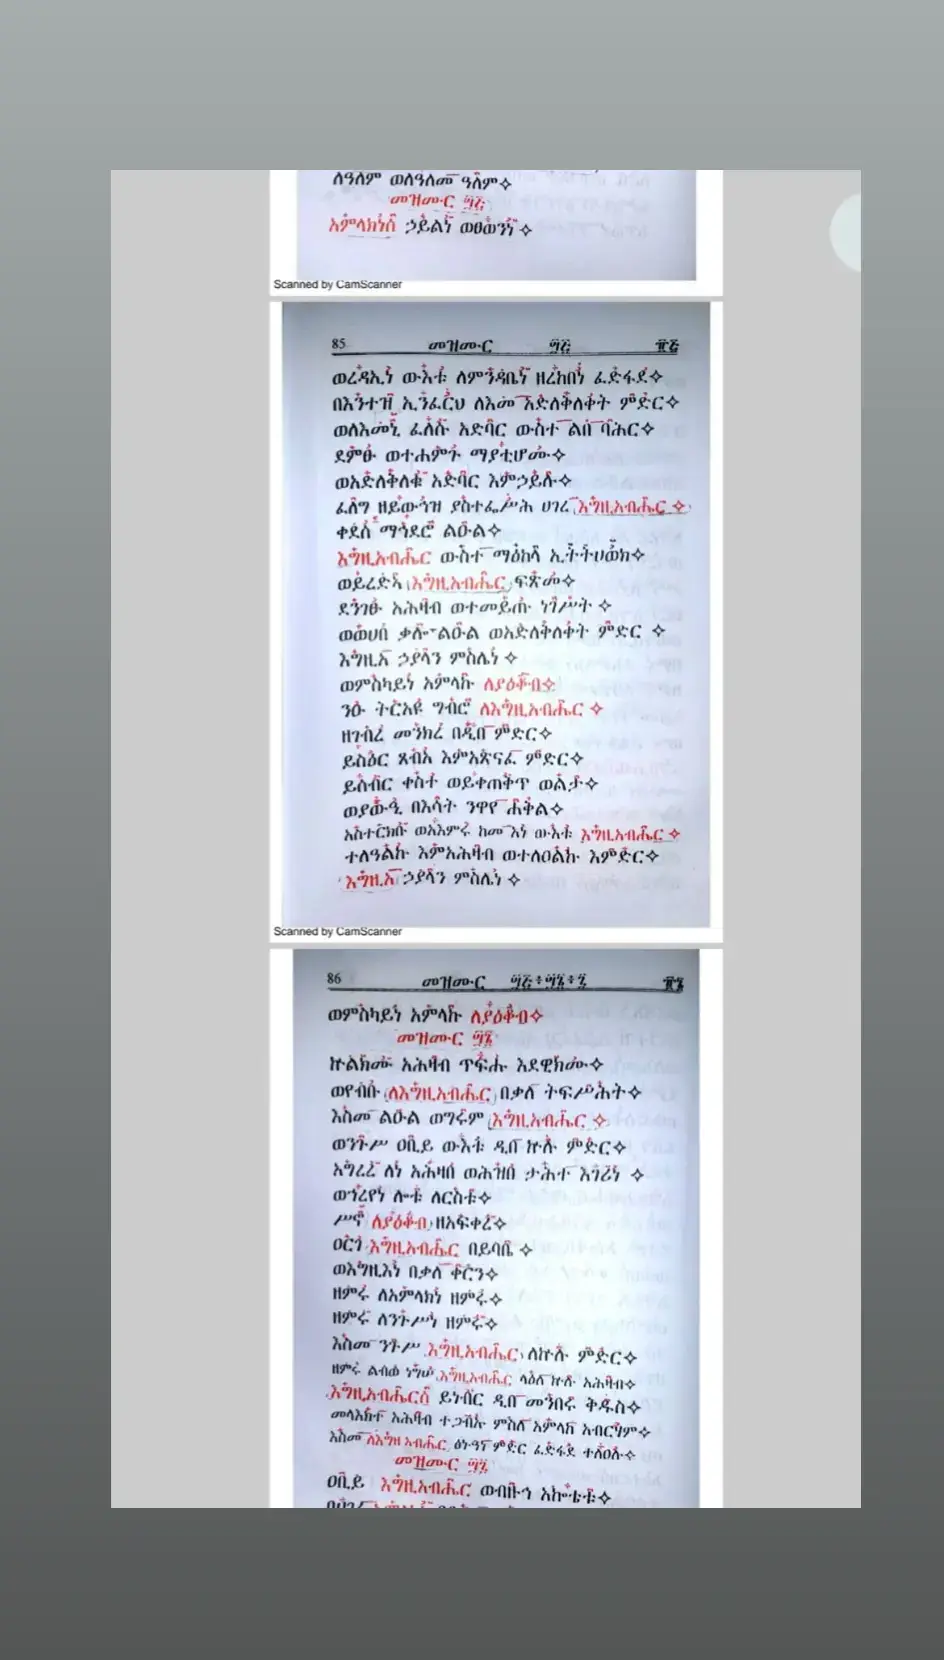 ለዓለም ወለዓለመ ዓለም✧
መዝሙር ፵፭
አምላክነሰ ኃይልነ ወፀወንነ✧
Scanned by CamScanner
85 መዝሙር ፵፭ ፹፭
ወረዳኢነ ውእቱ ለምንዳቤነ ዘረከበነ ፈድፋደ✧
በእንተዝ ኢንፈርህ ለእመ አድለቅለቀት ምድር✧
ወለእመኒ ፈለሱ አድባር ውስተ ልበ ባሕር✧
ደምፁ ወተሐምጉ ማያቲሆሙ✧
ወአድለቅለቁ አድባር እምኃይሉ✧
ፈለግ ዘይውኅዝ ያስተፌሥሕ ሀገረ እግዚአብሔር✧
ቀደሰ ማኅደሮ ልዑል✧
እግዚአብሔር ውስተ ማዕከላ ኢትትሀወክ✧
ወይረድኣ እግዚአብሔር ፍጽመ✧
ደንገፁ አሕዛብ ወተመይጡ ነገሥት✧
ወወሀበ ቃሎ ልዑል ወአድለቅለቀት ምድር✧
እግዚአ ኃያላን ምስሌነ✧
ወምስካይነ አምላኩ ለያዕቆብ✧
ንዑ ትርአዩ ግብሮ ለእግዚአብሔር✧
ዘገብረ መንክረ በዲበ ምድር✧
ይስዕር ጸብአ እምአጽናፈ ምድር✧
ይሰብር ቀስተ ወይቀጠቅጥ ወልታ✧
ወያውዒ በእሳት ንዋየ ሐቅል✧
አስተርክቡ ወአእምሩ ከመ አነ ውእቱ እግዚአብሔር✧
ተለዓልኩ እምአሕዛብ ወተለዐልኩ እምድር✧
እግዚአ ኃያላን ምስሌነ✧
Scanned by CamScanner
86 መዝሙር ፵፭፥፵፮፥፯ ፹፮
ወምስካይነ አምላኩ ለያዕቆብ✧
መዝሙር ፵፮
ኵልክሙ አሕዛብ ጥፍሑ እደዊክሙ✧
ወየብቡ ለእግዚአብሔር በቃለ ትፍሥሕት✧
እስመ ልዑል ወግሩም እግዚአብሔር✧
ወንጉሥ ዐቢይ ውእቱ ዲበ ኵሉ ምድር✧
አግረረ ለነ አሕዛበ ወሕዝበ ታሕተ እገሪነ✧
ወኀረየነ ሎቱ ለርስቱ✧
ሥኖ ለያዕቆብ ዘአፍቀረ✧
ዐርገ እግዚአብሔር በይባቤ✧
ወእግዚእነ በቃለ ቀርን✧
ዘምሩ ለአምላክነ ዘምሩ✧
ዘምሩ ለንጉሥነ ዘምሩ✧
እስመ ንጉሥ እግዚአብሔር ለኵሉ ምድር✧
ዘምሩ ልብወ ነግሠ እግዚአብሔር ላዕለ ኵሉ አሕዛብ✧
እግዚአብሔርሰ ይነብር ዲበ መንበሩ ቅዱስ✧
መላእክተ አሕዛብ ተጋብኡ ምስለ አምላከ አብርሃም✧
እስመ ለእግዚአብሔር ፅኑዓነ ምድር ፈድፋደ ተለዐሉ✧
መዝሙር ፵፯
ዐቢይ እግዚአብሔር ወብዙኅ አኰቴቱ✧